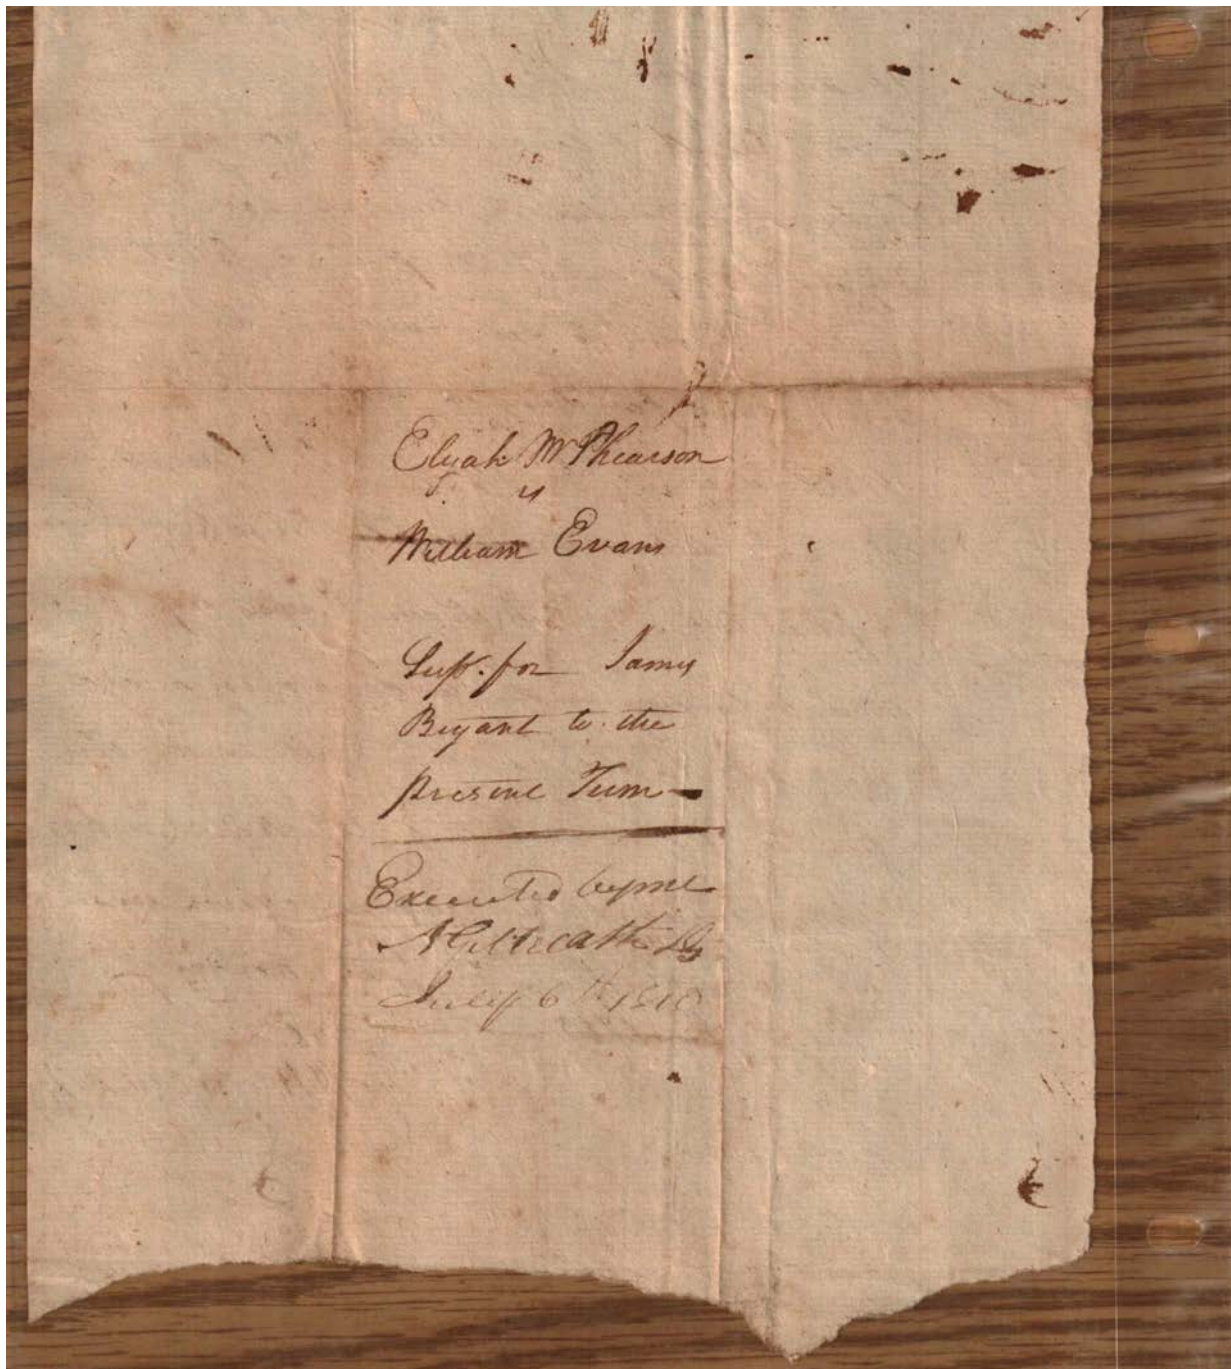 Elijah McPhearson
vs
William Evans
Supr. for James
Bryant to the
Present Term
Executed by me
July 6th 1810